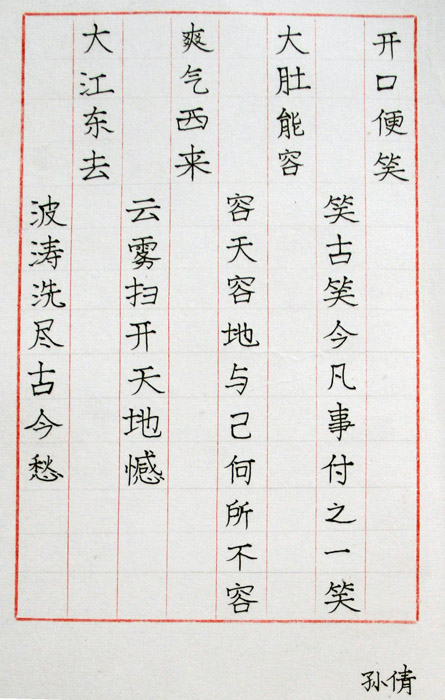 开口便笑
笑古笑今凡事付之一笑
大肚能容
容天容地与己何所不容
爽气西来
云雾扫开天地憾
大江东去
波涛洗尽古今愁
孙倩